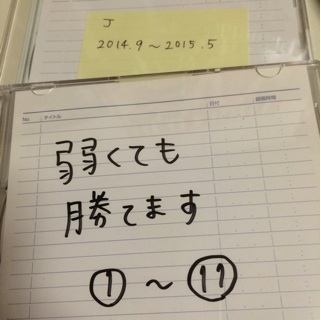 J
2014.9～2015.5
No. タイトル 日付 録画時間
弱くても
勝てます
①～⑪